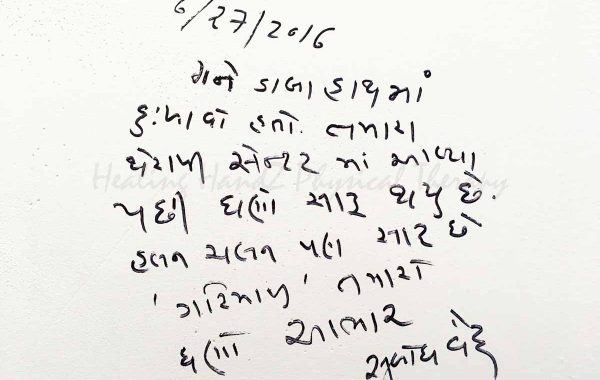 6/27/2016
મને ડાબા હાથ માં
દુઃખાવો હતો. તમારા
થેરાપી સેન્ટર માં આવ્યા
Healing Handz Physical Therapy
પછી ઘણો સારૂ થયુ છે.
હલન ચલન પણ સારૂ છે
'ગરિમાજી' તમારો
ઘણો આભાર
સુબોધ વૈદ્ય